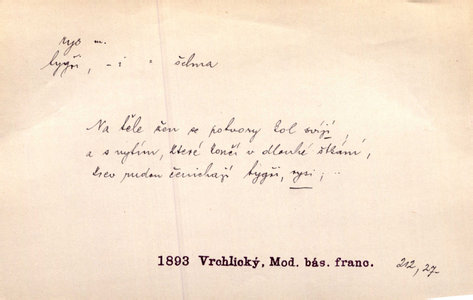 rys m.
tygři, - i " šelma
Na těle žen se potvory kol svíjí,
a s vytím, které končí v dlouhé štkání,
krev rudou čenichají tygři, rysi; ..
1893 Vrchlický, Mod. bás. franc. 212, 27.